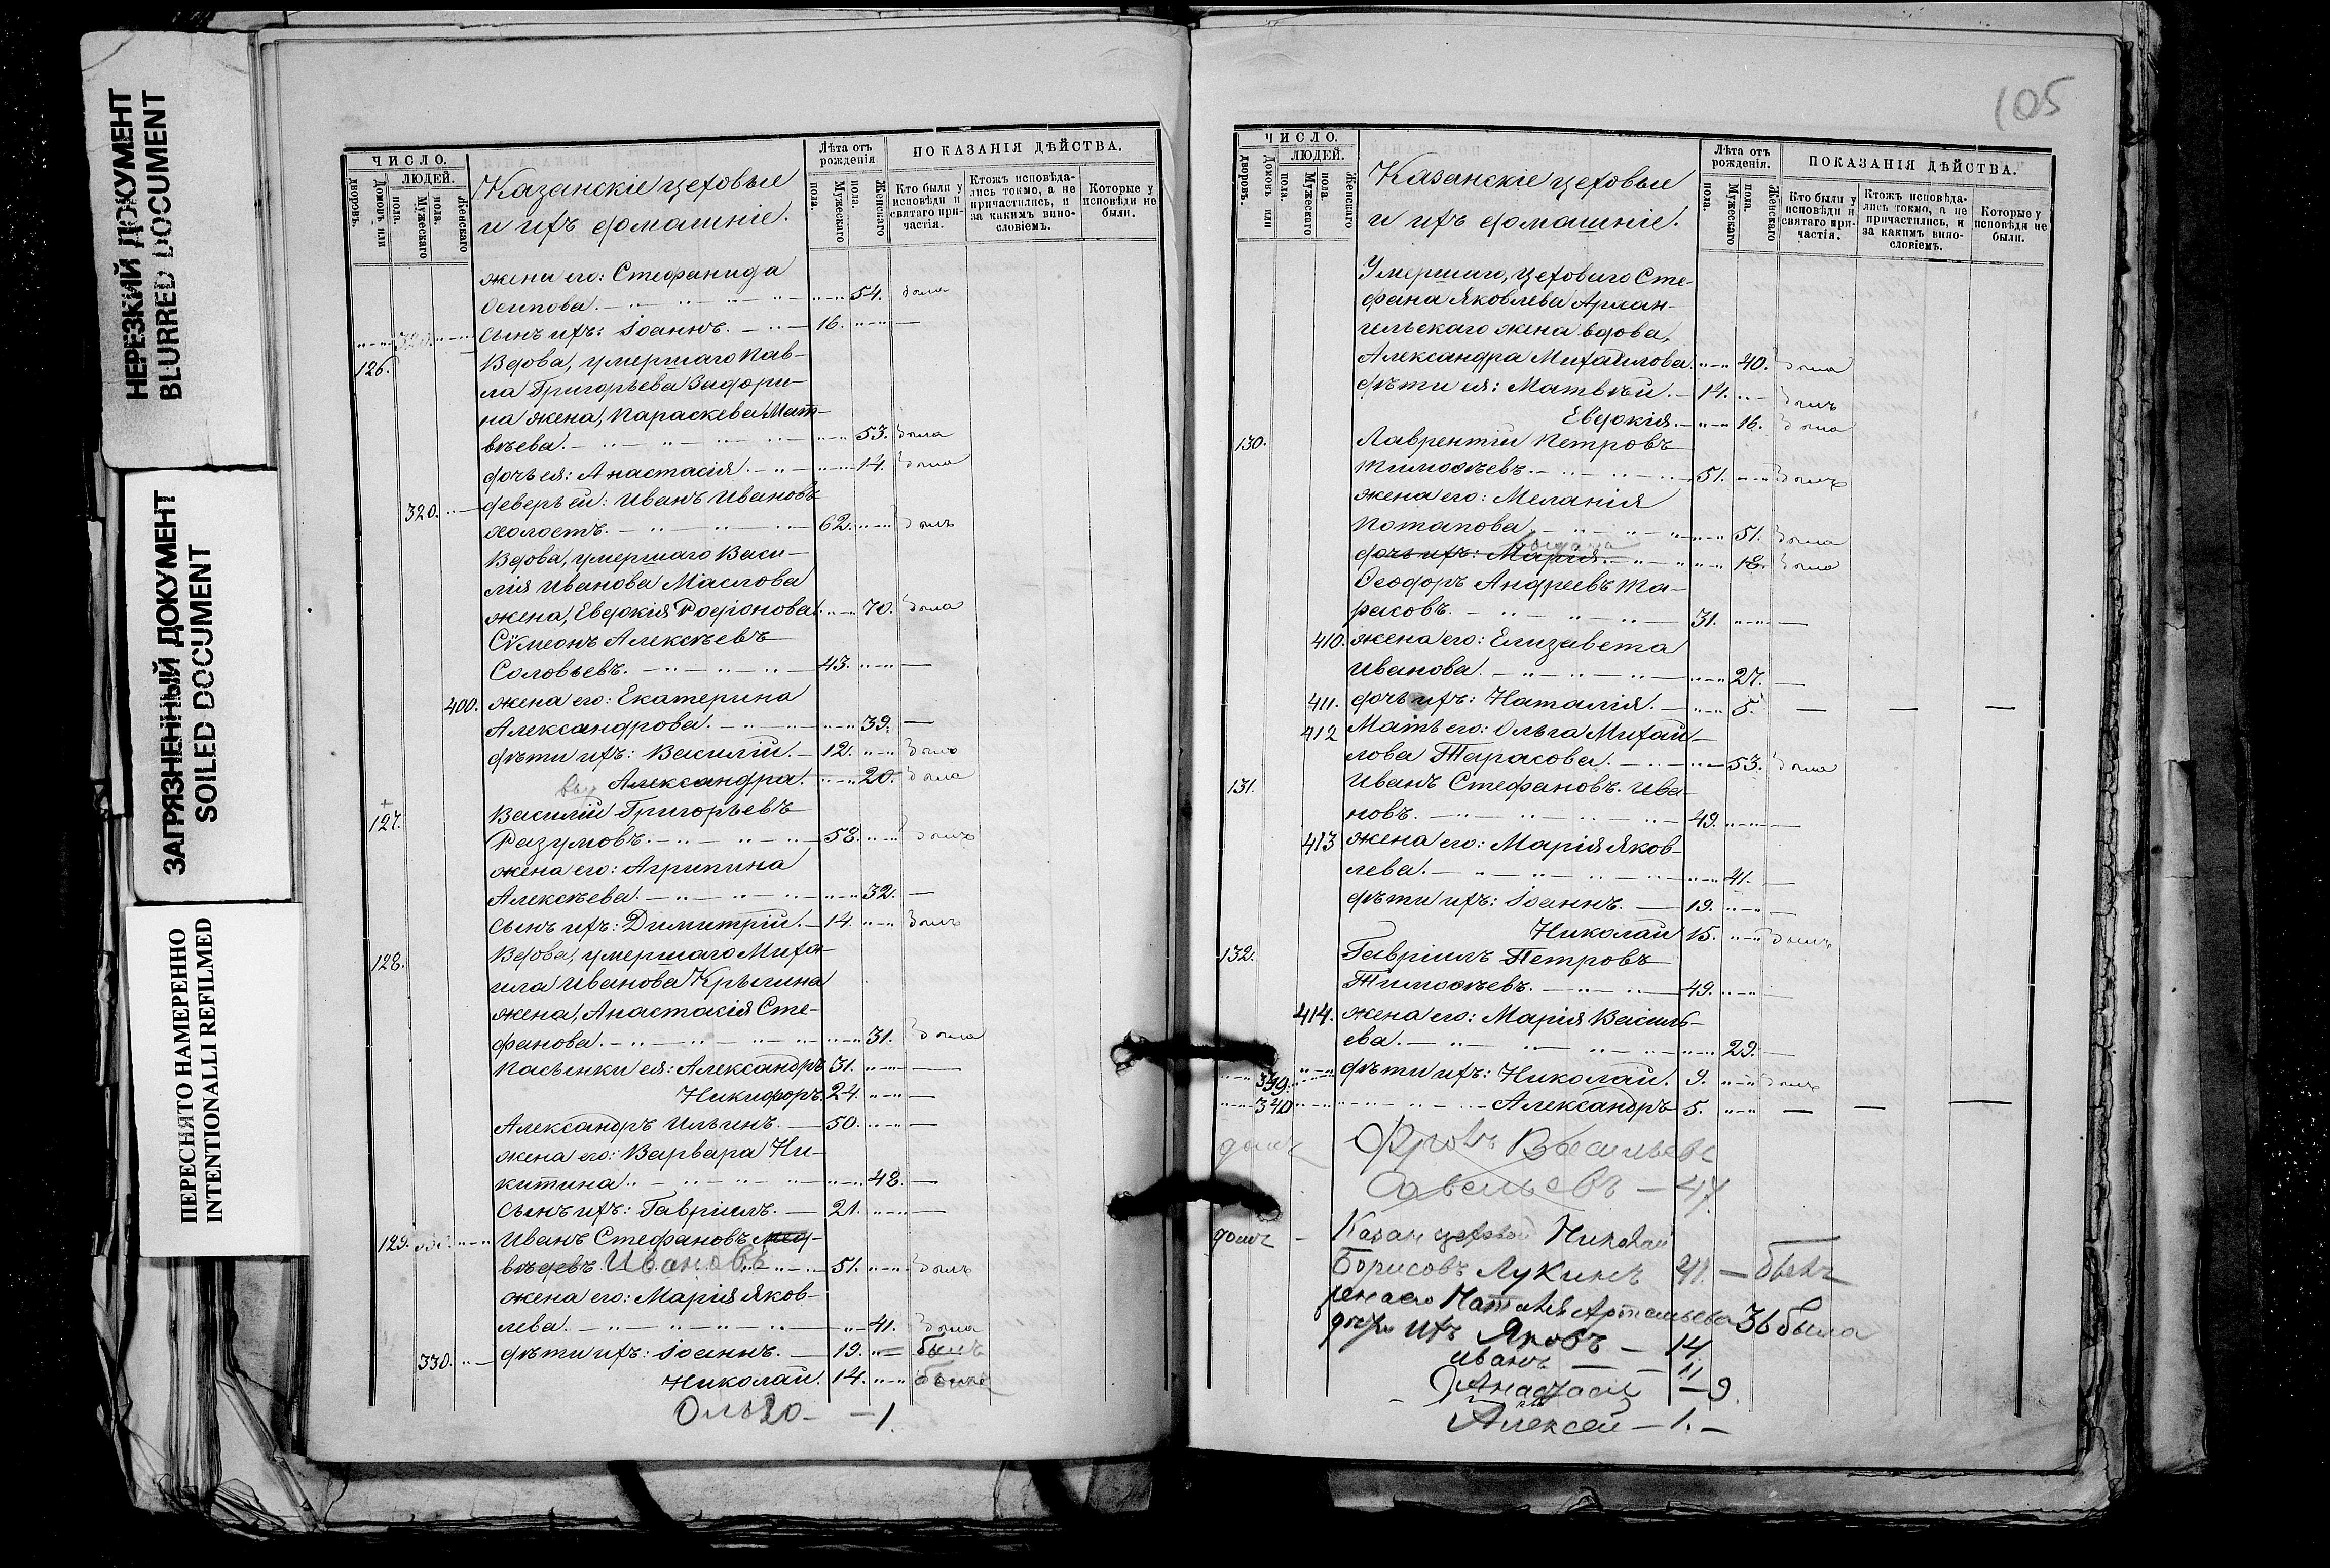 НЕРЕЗКИЙ ДОКУМЕНТ
BLURRED DOCUMENT
ЗАГРЯЗНЕННЫЙ ДОКУМЕНТ
SOILED DOCUMENT
ПЕРЕСНЯТО НАМЕРЕННО
INTENTIONALLI REFILMED
ЧИСЛО.
ЛЮДЕЙ.
Домовъ или дворовъ.
Мужескаго пола.
Женскаго пола.
Казанскіе цеховые
и ихъ домашніе.
Лѣта отъ рожденія
Мужескаго пола.
Женскаго пола.
ПОКАЗАНІЯ ДѢЙСТВА.
Кто были у исповѣди и святаго причастія.
Ктожъ исповѣдались токмо, а не причастились, и за какимъ винословіемъ.
Которые у исповѣди не были.
жена его: Стефанида
Осипова. 54. была
сынъ ихъ: Іоаннъ. 16. —
126. Вдова, умершаго Пав-
ла Григорьева Задори-
на жена, Параскева Мат-
вѣева. 53. была
дочь ея: Анастасія. 14. была
320. деверь ей: Иванъ Ивановъ
холостъ. 62. былъ
Вдова, умершаго Васи-
лія Иванова Маслова
жена, Евдокія Родіонова. 70. была
Сѵмеонъ Алексѣевъ
Соловьевъ. 43. —
400. жена его: Екатерина
Александрова. 39. —
дѣти ихъ: Василій. 12. былъ
Александра. 20. была
127. Василій Григорьевъ
Разумовъ. 58. былъ
жена его: Агрипина
Алексѣева. 32. —
сынъ ихъ: Димитрій. 14. былъ
128. Вдова, умершаго Миха-
ила Иванова Крылина
жена, Анастасія Сте-
фанова. 31. была
Пасынки ея: Александръ 31. —
Никифоръ. 24. —
Александръ Ильинъ. 50. —
жена его: Варвара Ни-
китина. 48. —
сынъ ихъ: Гавріилъ. 21. —
129. Иванъ Стефановъ мед-
вѣдевъ. Ивановъ 51. былъ
жена его: Марія Яков-
лева. 41. была
330. дѣти ихъ: Іоаннъ. 19. былъ
Николай. 14. былъ
Ольга — 1.
105
ЧИСЛО.
ЛЮДЕЙ.
Домовъ или дворовъ.
Мужескаго пола.
Женскаго пола.
Казанскіе цеховые
и ихъ домашніе.
Лѣта отъ рожденія.
Мужескаго пола.
Женскаго пола.
ПОКАЗАНІЯ ДѢЙСТВА.
Кто были у исповѣди и святаго причастія.
Ктожъ исповѣдались токмо, а не причастились, и за какимъ винословіемъ.
Которые у исповѣди не были.
Умершаго, цеховаго Сте-
фана Яковлева Архан-
гельскаго жена вдова,
Александра Михайлова 40. была
дѣти ея: Матвѣй. 14. былъ
Евдокія. 16. была
130. Лаврентій Петровъ
Тимоѳеевъ. 51. былъ
жена его: Меланія
Потапова. 51. была
дочь ихъ: Марія. 18. была
Ѳеодоръ Андреевъ Та-
расовъ. 31. —
410. жена его: Елизавета
Иванова. 27. —
411. дочь ихъ: Наталія. 5. — — —
412 Мать его: Ольга Михай-
лова Тарасова. 53. была
131. Иванъ Стефановъ. Ива-
новъ. 49. —
413 жена его: Марія Яков-
лева. 41. —
дѣти ихъ: Іоаннъ. 19. —
Николай 15. былъ
132. Гавріилъ Петровъ
Тимоѳеевъ. 49. —
414. жена его: Марія Василь-
ева. 29. —
339. дѣти ихъ: Николай. 9. былъ
340 Александръ 5. — — —
Фролъ Васильевъ
Савельевъ — 47.
Казан цеховой Николай
Борисовъ Лукинъ 41. — былъ
жена его Наталья Артемьева 36 была
дѣти ихъ Яковъ — 14
Иванъ — 11
Анастасія — 9.
Алексей — 1. —